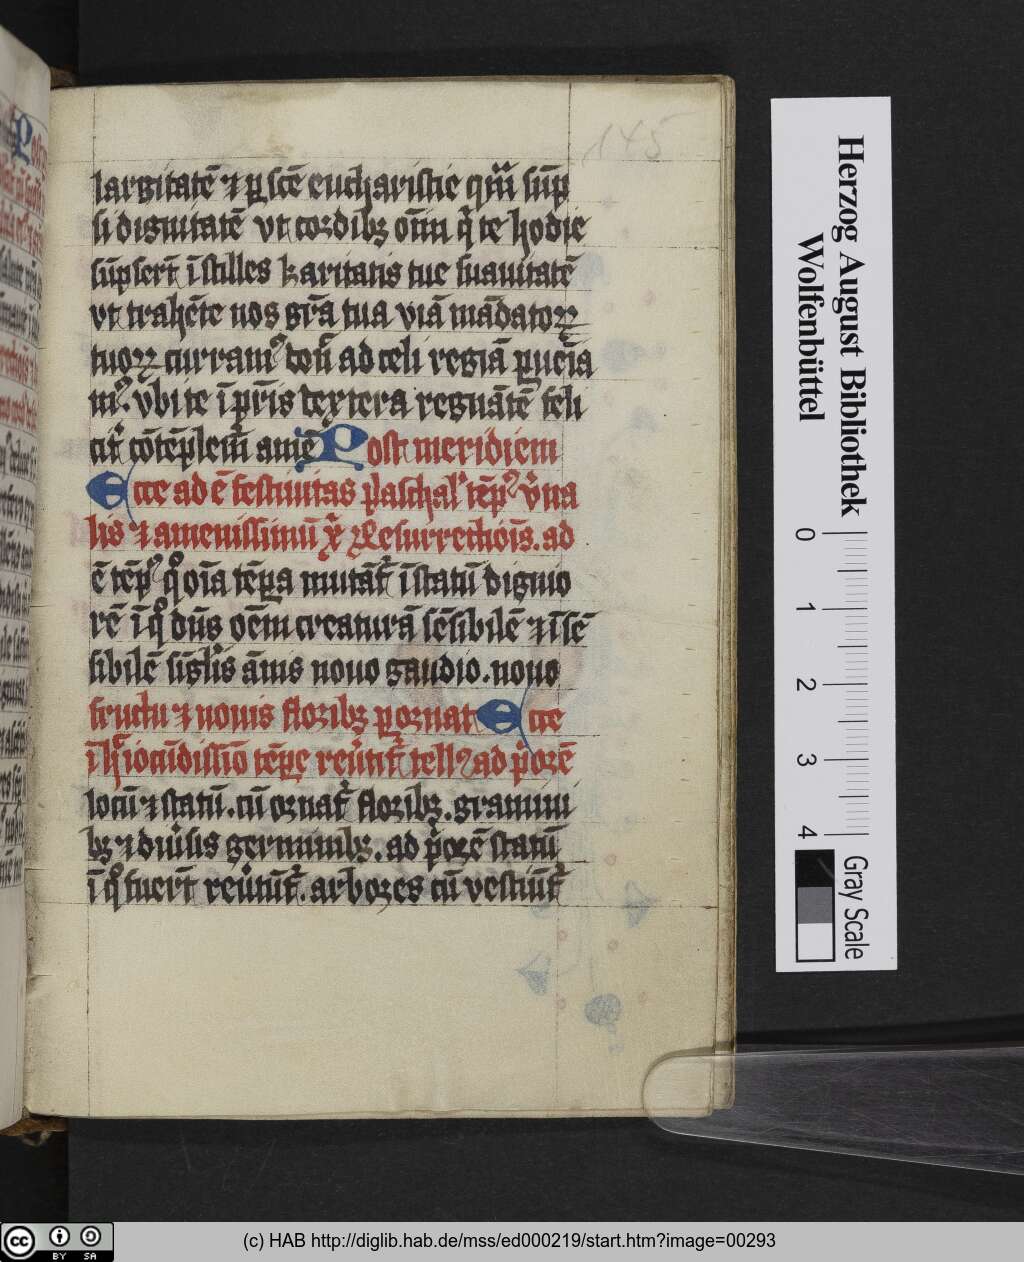 145
largitatē ⁊ ꝑ scē eucharistie qm̄ sūp
si dignitatē vt cordibꝫ oīm q̄ te hodie
sūpsert̄ īstilles karitatis tue suauitatē
vt trahēte nos gr̄a tua viā mādatoꝝ
tuoꝝ curram⁹ ad celi regiā ꝑueīa
m⁹. vbi te ī pr̄is dextera regnātē feli
cit̄ cōtēplem̄ amē Post meridiem
Ecce ad ē festiuitas paschal' tēp⁹ v̄na
lis ⁊ amenissimū resurrectiois̄. ad
ē tēp⁹ qͦ oīa tēꝑa mutāt̄ ī statū dignio
rē ī qͦ dn̄s oēm creaturā sēsibilē ⁊ īsē
sibilē sīgl'is āmis nouo gaudio. nouo
fructu ⁊ nouis floribꝫ ꝑornat Ecce
ī h iocūdissīo tēꝑe reūtit̄ tell⁹ ad pͥorē
locū ⁊ statū. cū ornat̄ floribꝫ. gramini
bꝫ ⁊ diūsis germinibꝫ. ad pͥorē statū
ī qͦ fuert̄ reūtūt̄. arbores cū vestiūt̄
Herzog August Bibliothek
Wolfenbüttel
0 1 2 3 4
Gray Scale
cc BY SA
(c) HAB http://diglib.hab.de/mss/ed000219/start.htm?image=00293